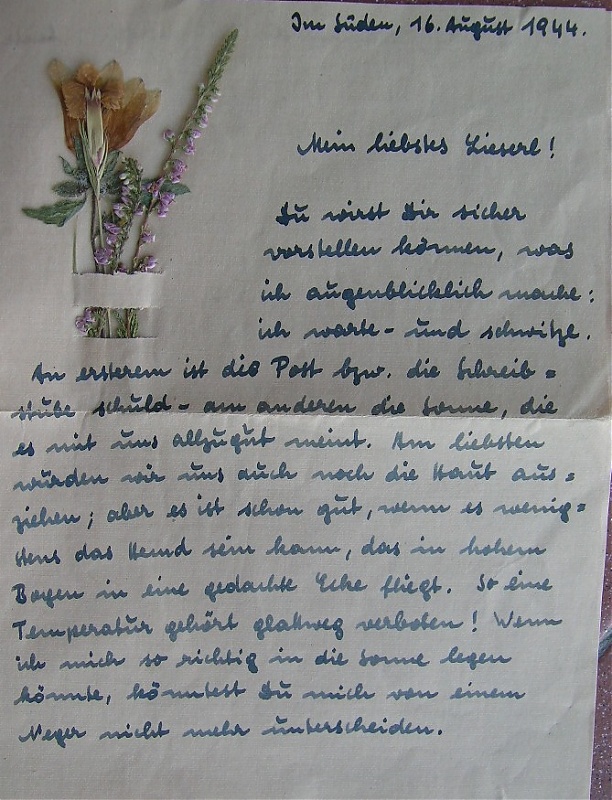 Im Süden, 16. August 1944.
Mein liebstes Lieserl!
Du wirst Dir sicher
vorstellen können, was
ich augenblicklich mache:
ich warte - und schwitze.
An ersterem ist die Post bzw. die Schreib=
stube schuld - am anderen die Sonne, die
es mit uns allzugut meint. Am liebsten
würden wir uns auch noch die Haut aus=
ziehen; aber es ist schon gut, wenn es wenig=
stens das Hemd sein kann, das in hohem
Bogen in eine gedachte Ecke fliegt. So eine
Temperatur gehört glattweg verboten! Wenn
ich mich so richtig in die Sonne legen
könnte, könntest Du mich von einem
Neger nicht mehr unterscheiden.